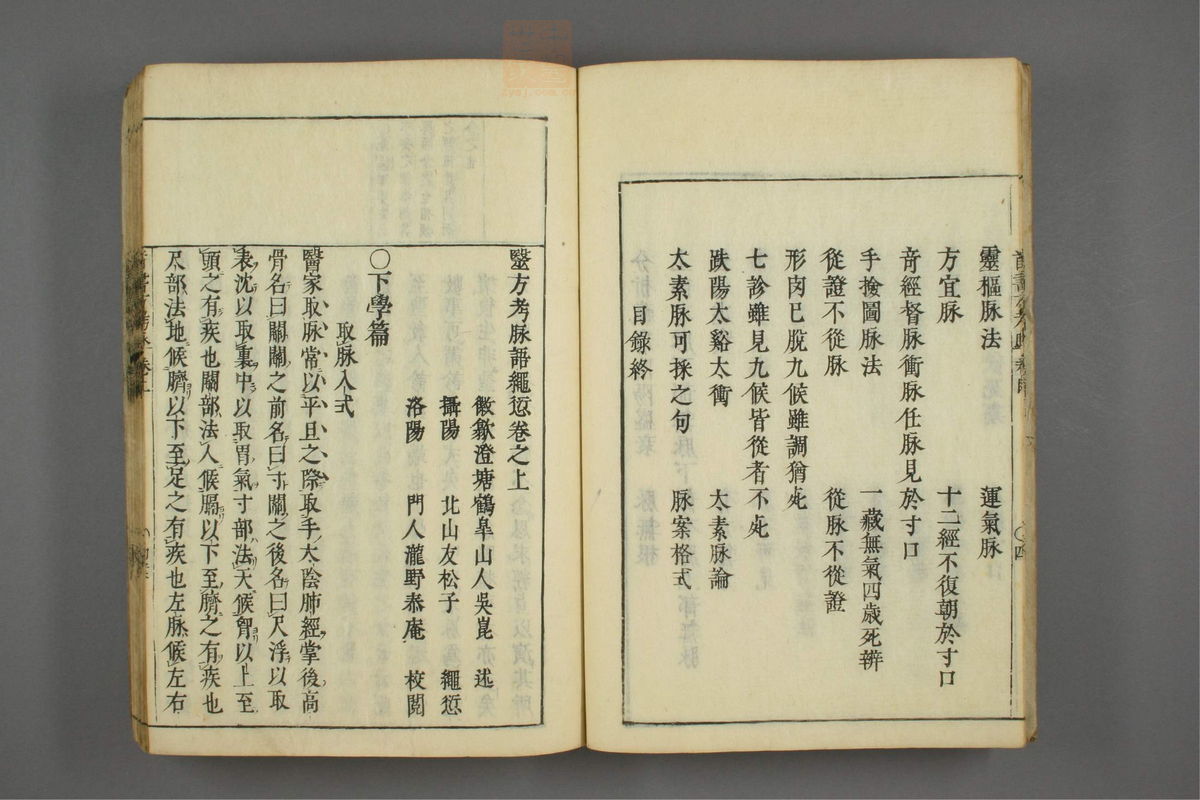 靈樞脉法　運氣脉
方宜脉　十二經不復朝於寸口
奇經督脉衝脉任脉見於寸口
手撿圖脉法　一藏無氣四歲死辨
從證不從脉　從脉不從證
形肉已脫九候雖調猶死
七診雖見九候皆從者不死
趺陽太谿太衝　太素脉論
太素脉可採之句　脉案格式
目錄終
毉方考脉語繩愆卷之上
徽歙澄塘鶴皐山人吳崑　述
攝陽　北山友松子　繩愆
洛陽　門人瀧野泰庵　校閲
○下學篇
取脉入式
醫家取脉常以平旦之際取手大陰肺經掌後高
骨名曰關關之前名曰寸關之後名曰尺浮以取
表沈以取裏中以取胃氣寸部法天候胷以上至
頭之有疾也關部法人候膈以下至臍之有疾也
尺部法地候臍以下至足之有疾也左脉候左右